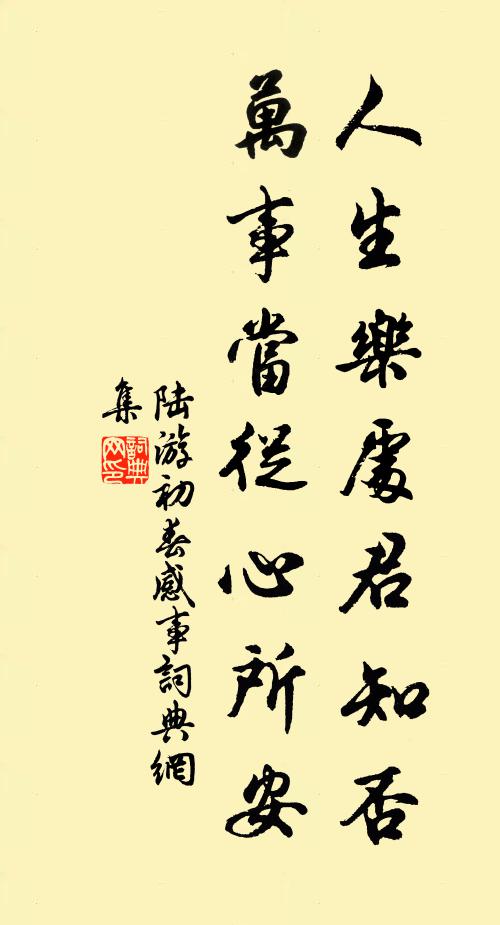 人生樂處君知否
萬事當從心所安
陆游初春感事詞典網
集
詞典
网印